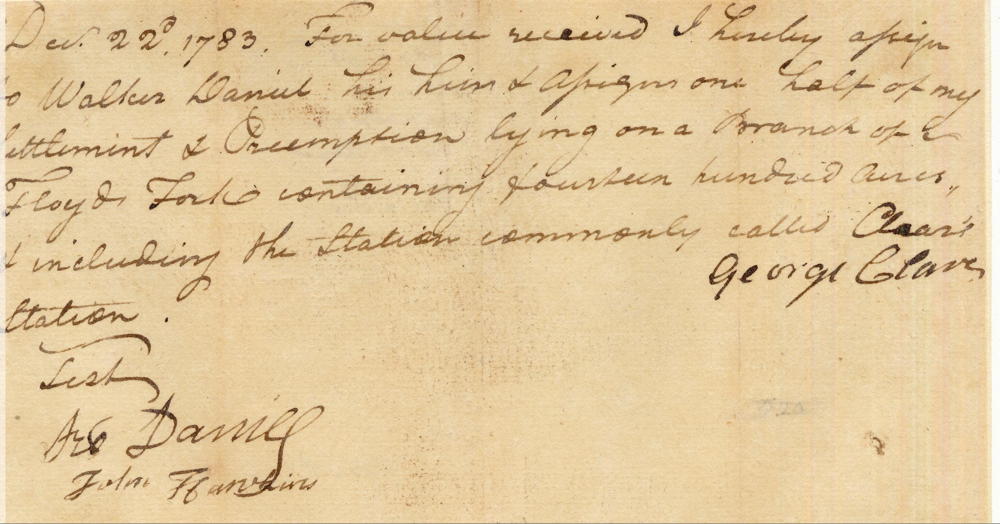 Dec. 22d. 1783. For value received I hereby assign
to Walker Daniel his heirs & assigns one half of my
settlement & Preemption lying on a Branch of
Floyds Fork containing fourteen hundred acres,
& including the Station commonly called Clear's
George Clare
Station.
Test
Daniel
John Hawkins